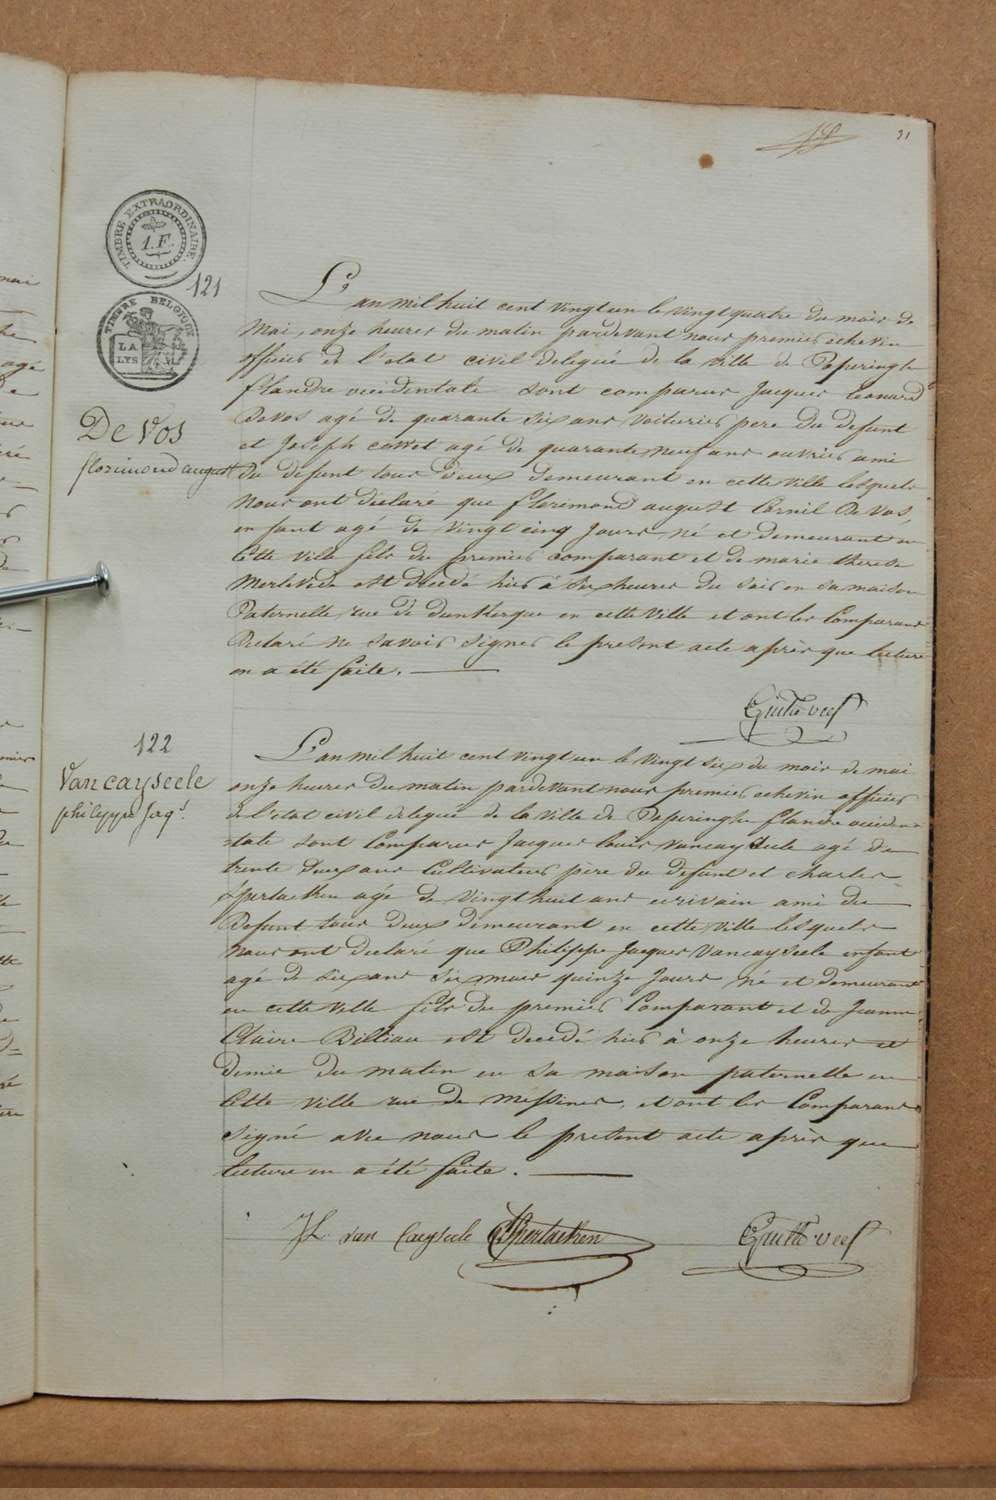 31
TIMBRE EXTRAORDINAIRE.
1.F.
TIMBRE BELGIQUE
LA
LYS
121
De Vos
florimond august
L'an mil huit cent vingt un le vingt quatre du mois de
Mai, onze heures du matin pardevant nous premier echevin
officier de l'etat civil delegué de la ville de Poperinghe
flandre occidentale sont comparus Jacques Leonard
De Vos agé de quarante six ans voiturier pere du defunt
et Joseph agé de quarante neuf ans ouvrier ami
du defunt tous deux demeurant en cette ville lesquels
Nous ont déclaré que floremond august Cornil De Vos,
enfant agé de vingt cinq jours né et demeurant en
cette ville fils du premier comparant et de marie therese
Merlevede est decedé hier à six heures du soir en sa maison
Paternelle, rue de dunkerque en cette ville et ont les Comparans
Declaré ne savoir signer le present acte après que lecture
en a été faite.
122
Vancayseele
philippe jaqs
L'an mil huit cent vingt un le vingt six du mois de mai
onze heures du matin pardevant nous premier echevin officier
de l'etat civil delegué de la ville de Poperinghe flandre occiden
tale sont Comparus Jacques louis vancayseele agé de
trente deux ans Cultivateur père du defunt et charles
agé de vingt huit ans ecrivain ami du
Defunt tous deux demeurant en cette ville lesquels
Nous ont declaré que Philippe Jacques Vancayseele enfant
agé de six ans six mois quinze jours né et demeurant
en cette ville fils du premier Comparant et de Jeanne
Claire Billiau est decedé hier à onze heures et
demie du matin en sa maison paternelle en
Cette ville rue de Messines, et ont les Comparans
signé avec nous le present acte après que
lecture en a été faite.
JL van Cayseele